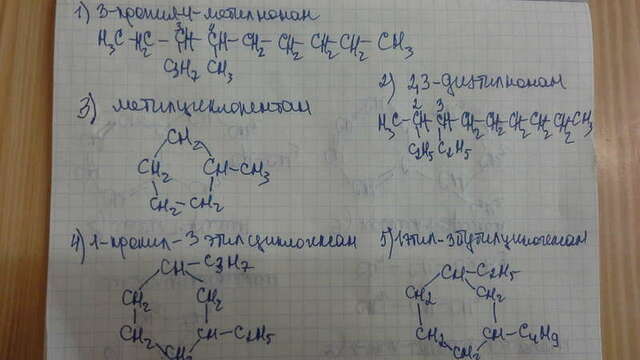 1) 3-пропил-4-метилнонан
H₃C-H₂C-CH-CH-CH₂-CH₂-CH₂-CH₂-CH₃
3 4
C₃H₇ CH₃
2) 2,3-диэтилнонан
2 3
H₃C-CH-CH-CH₂-CH₂-CH₂-CH₂-CH₂-CH₃
C₂H₅ C₂H₅
3) метилциклопентан
CH₂
CH₂ CH-CH₃
CH₂-CH₂
4) 1-пропил-3 этилциклогексан
CH-C₃H₇
CH₂ CH₂
CH₂ CH-C₂H₅
CH₂
5) 1этил-3бутилциклогексан
CH-C₂H₅
CH₂ CH₂
CH₂ CH-C₄H₉
CH₂